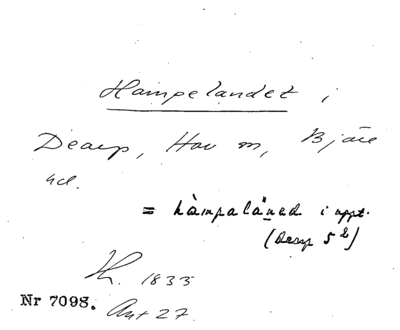 Hampelandet,
Dearp, Hov sn, Bjäre
hd.
= hàmpalä̀ned i uppt.
(Dearp 5²)
H. 1833
Nr 7098. Ant 27